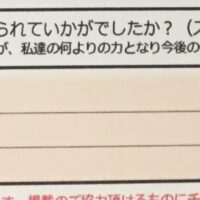 られていかがでしたか？（
が、私達の何よりの力となり今後の
掲載のご協力頂けるものにチ